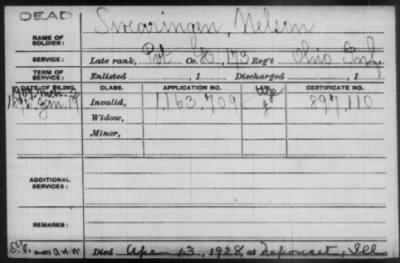 DEAD
NAME OF SOLDIER: Swearingen, Nelson
SERVICE: Late rank, Pvt Co. G, 173 Reg't Ohio Inf.
TERM OF SERVICE: Enlisted , 1 Discharged , 1
DATE OF FILING. CLASS. APPLICATION NO. CERTIFICATE NO.
Invalid, 1,163,709 897,110
Widow,
Minor,
ADDITIONAL SERVICES:
REMARKS:
Died Apr 13, 1928, at Deponsit, Ill